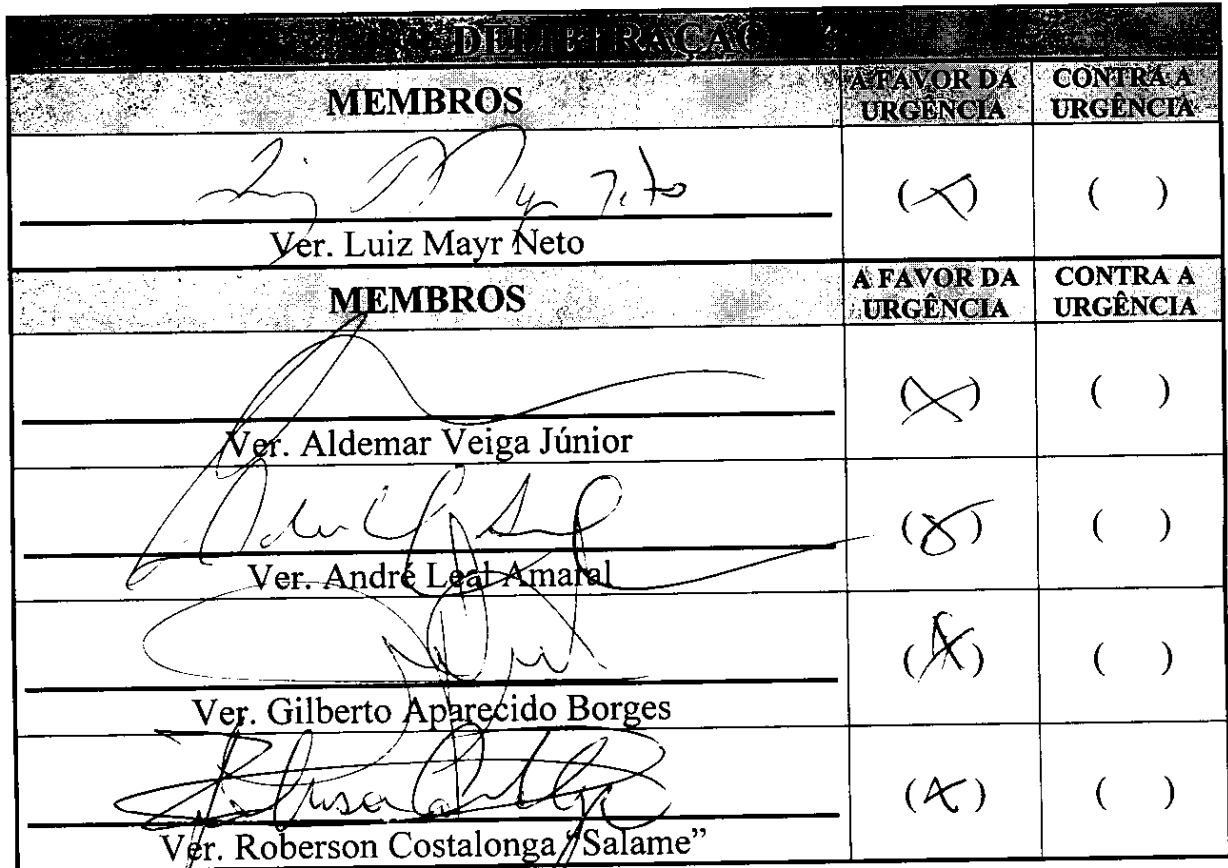 DELIBERAÇÃO
MEMBROS
A FAVOR DA URGÊNCIA
CONTRA A URGÊNCIA
Luiz Mayr Neto
(X)
( )
Ver. Luiz Mayr Neto
MEMBROS
A FAVOR DA URGÊNCIA
CONTRA A URGÊNCIA
(X)
( )
Ver. Aldemar Veiga Júnior
(X)
( )
Ver. André Leal Amaral
(X)
( )
Ver. Gilberto Aparecido Borges
(X)
( )
Ver. Roberson Costalonga "Salame"